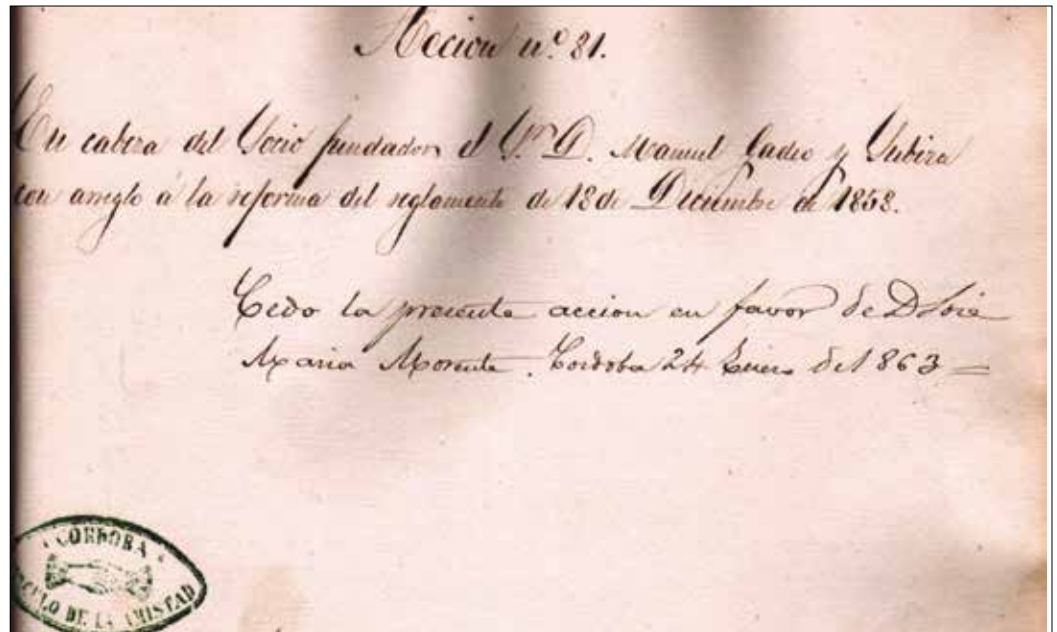 Accion nº 81.
En cabeza del Socio fundador el Sr. D. Manuel Gadeo y Subiza
con arreglo á la reforma del reglamento de 18 de Diciembre de 1858.
Cedo la presente accion en favor de D Jose
Maria Morente. Cordoba 24 Enero de 1863 =
CORDOBA
CULO DE LA AMISTAD